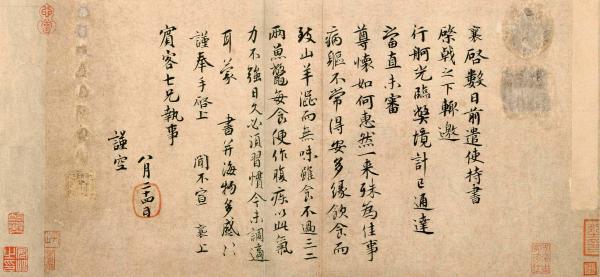 襄啓數日前遣使持書
棨戟之下輒邀
行舸光臨獘境計已通達
當直未審
尊懷如何惠然一来殊為佳事
病軀不常得安多縁飲食而
致山羊澀而無味雖食不過三二
兩魚鼈每食便作腹疾以此氣
力不強日久必須習慣今未調適
耳蒙 書并海物多感〻
謹奉手啓上 聞不宣 襄上
賓客七兄執事
八月二十四日
謹空